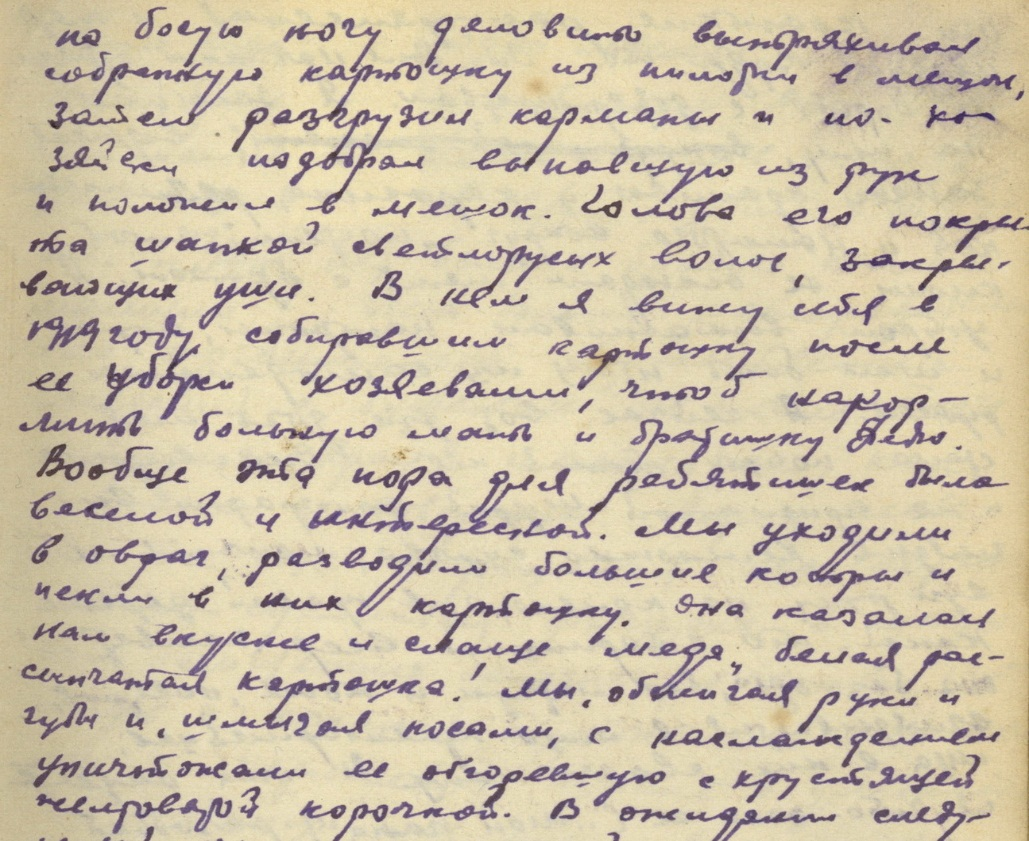 на босую ногу деловито вытряхивал
собранную картошку из пилотки в мешок,
затем разгрузил карманы и по-хо-
зяйски подобрал выпавшую из рук
и положил в мешок. Голова его покры-
та шапкой светлорусых волос, закры-
вающих уши. В нем я вижу себя в
1919 году, собиравшим картошку после
ее уборки хозяевами, чтоб накор-
мить больную мать и братишку
Вообще эта пора для ребятишек была
веселой и интересной. Мы уходили
в овраг, разводили большие костры и
пекли в них картошку. Она казалась
нам вкуснее и слаще меда, белая рас-
сыпчатая картошка! Мы, обжигая руки и
губы и, шмыгая носами, с наслаждением
уничтожали ее обгоревшую с хрустящей
желтоватой корочкой. В ожидании следу-